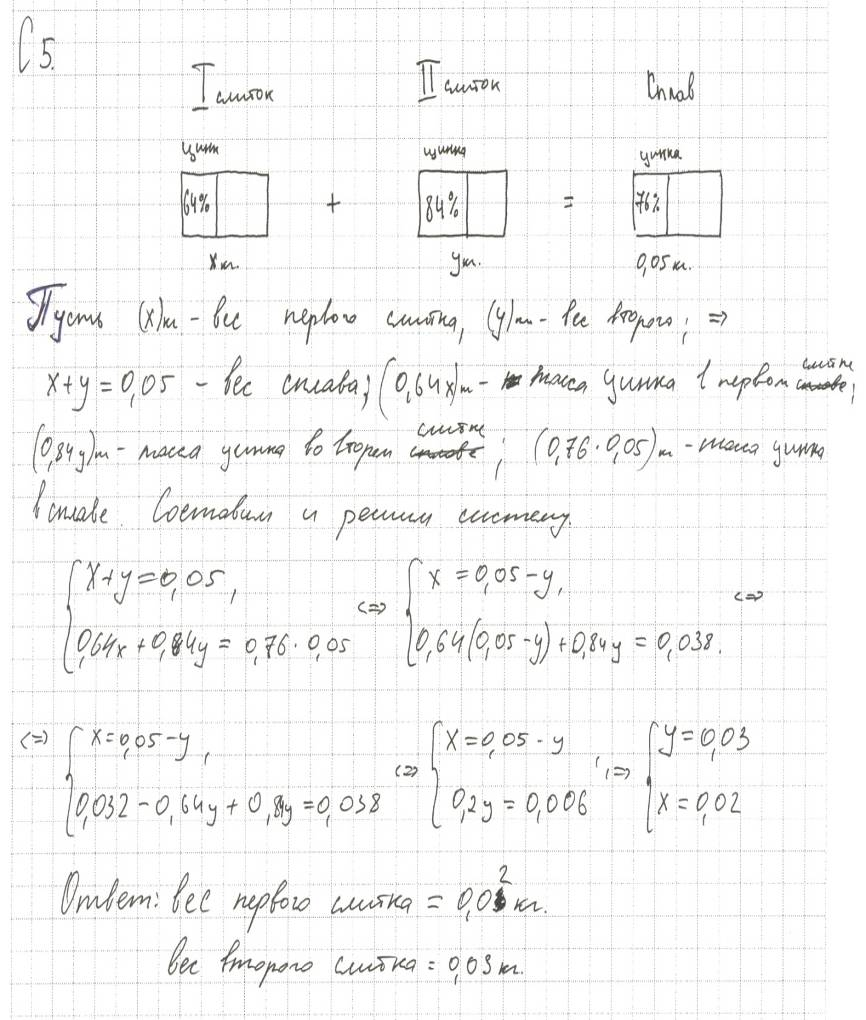 С5.
I слиток II слиток Сплав
цинк цинка цинка
64% + 84% = 76%
x кг. y кг. 0,05 кг.
Пусть (x)кг – вес первого слитка, (y)кг – вес второго; =>
x+y=0,05 – вес сплава; (0,64x)кг – масса цинка в первом слитке;
(0,84y)кг – масса цинка во втором слитке; (0,76·0,05)кг – масса цинка
в сплаве. Составим и решим систему.
x+y=0,05, <=> x=0,05-y, <=>
0,64x+0,84y=0,76·0,05 0,64(0,05-y)+0,84y=0,038.
<=> x=0,05-y, <=> x=0,05-y , => y=0,03
0,032-0,64y+0,84y=0,038 0,2y=0,006 x=0,02
Ответ: вес первого слитка = 0,02 кг.
вес второго слитка = 0,03 кг.